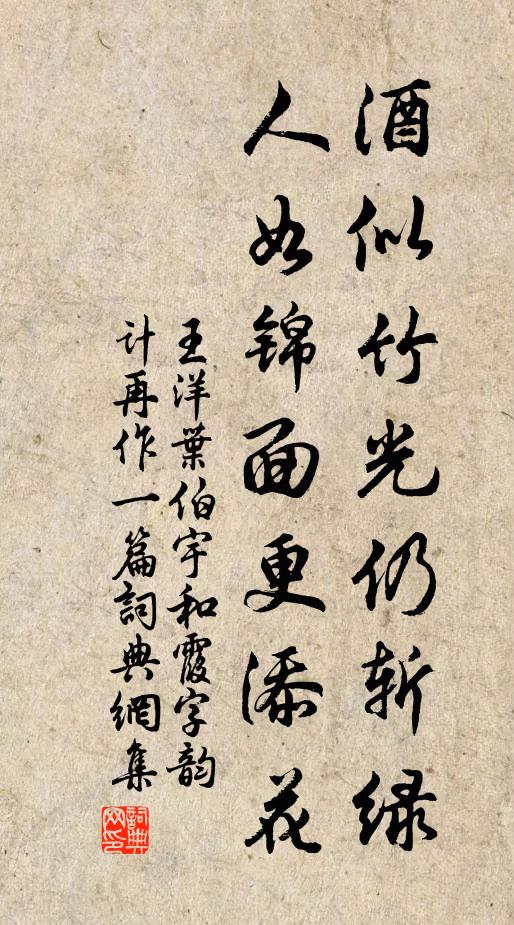 酒似竹光仍斩绿
人如锦面更添花
王洋葉伯宇和霞字韵
计再作一篇詞典網集
詞典网印